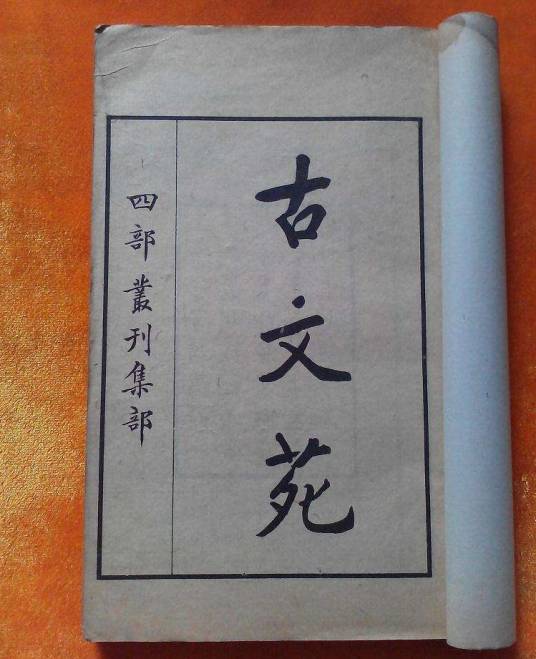 古文苑
四部叢刊集部